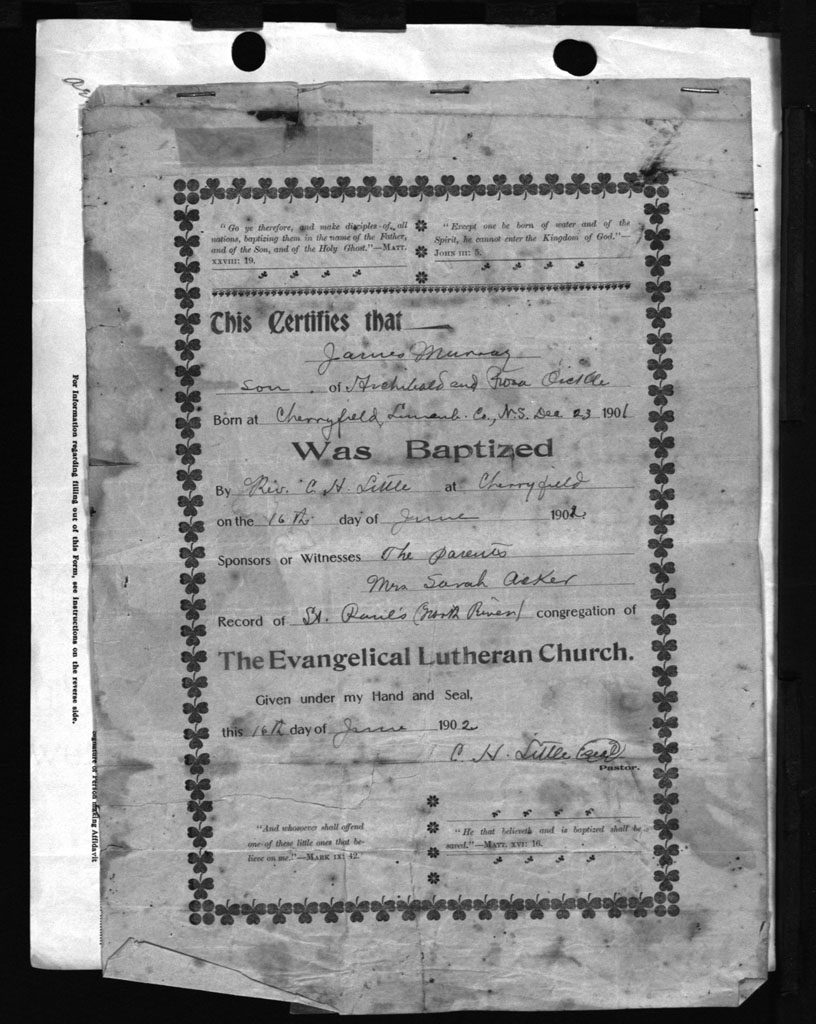 " Go ye therefore, and make disciples of all
nations, baptizing them in the name of the Father,
and of the Son, and of the Holy Ghost."—MATT.
XXVIII: 19.
" Except one be born of water and of the
Spirit, he cannot enter the Kingdom of God."—
JOHN III: 5.
This Certifies that
James Murray
son of Archibald and Oickle
Born at Cherryfield, Lunenb. Co., N.S. Dec 23 1901
Was Baptized
By Rev. C. H. Little at Cherryfield
on the 16th day of June 1902
Sponsors or Witnesses The parents
Mrs Sarah Acker
Record of St. Paul's (North River) congregation of
The Evangelical Lutheran Church.
Given under my Hand and Seal,
this 16th day of June 1902
C. H. Little (seal)
Pastor.
"And whosoever shall offend
one of these little ones that be-
lieve on me."—MARK IX: 42.
" He that believeth and is baptized shall be
saved."—MATT. XVI: 16.
For Information regarding filling out of this Form, see Instructions on the reverse side.
Signature of Person making Affidavit